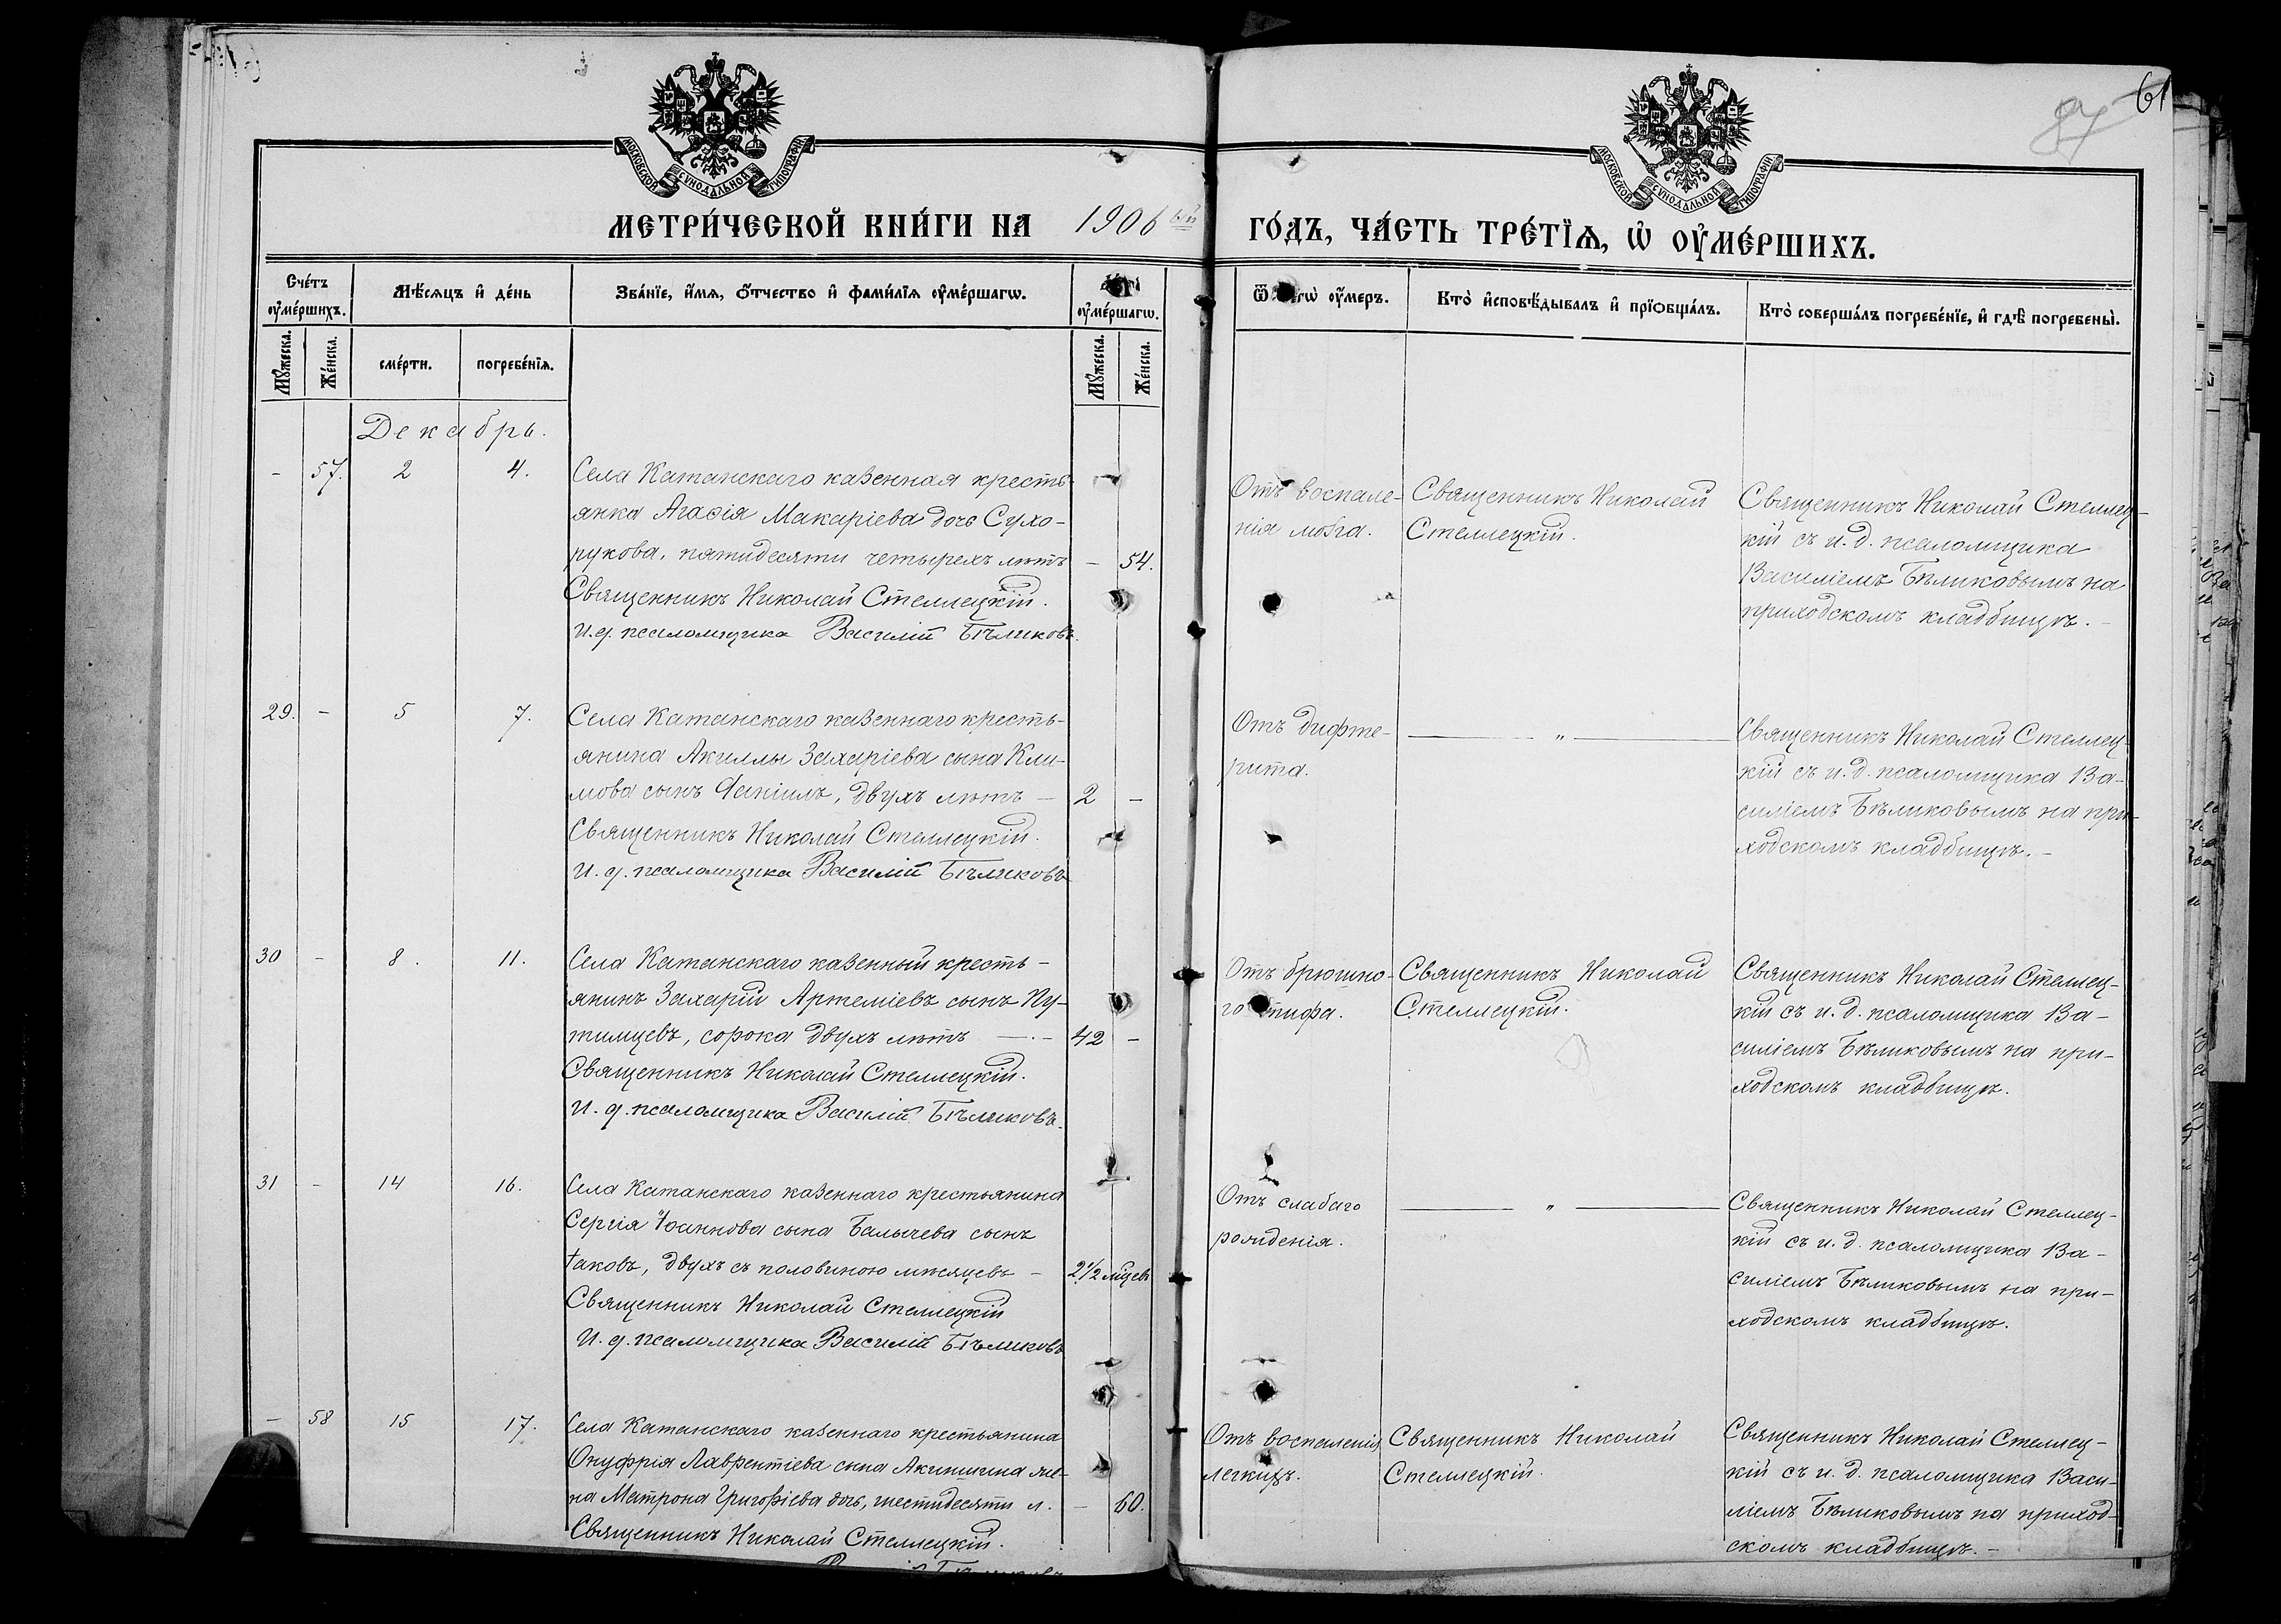 61
87
МОСКОВСКОЙ СУНОДАЛЬНОЙ ТИПОГРАФІИ
МОСКОВСКОЙ СУНОДАЛЬНОЙ ТИПОГРАФІИ
МЕТРИ́ЧЕСКОЙ КНИ́ГИ НА 1906 ый ГО́ДЪ, ЧА́СТЬ ТРЕ́ТЇѦ, Ѡ҆ ОУ҆МЕ́РШИХЪ.
Сче́тъ оу҆ме́ршихъ.
Мѣ́сяцъ и҆ де́нь
Зва́нїе, и҆́мя, ѻ҆́тчество и҆ фами́лїя оу҆ме́ршагѡ.
оу҆ме́ршагѡ.
оу҆́меръ.
Кто̀ и҆сповѣ́дывалъ и҆ прїѻбща́лъ.
Кто̀ соверша́лъ погребе́нїе, и҆ гдѣ̀ погребены̀.
Мꙋ́жеска.
Же́нска.
сме́рти.
погребе́нїя.
Мꙋ́жеска.
Же́нска.
Декабрь.
- 57. 2 4.
Села Катанскаго казенная кресть-
янка Агаѳія Макаріева дочь Сухо-
рукова, пятидесяти четырехъ лѣтъ - 54.
Священникъ Николай Стеллецкій.
И. д. псаломщика Василій Бѣликовъ.
Отъ воспале-
нія мозга.
Священникъ Николай
Стеллецкій.
Священникъ Николай Стеллец-
кій съ и. д. псаломщика
Василіемъ Бѣликовымъ на
приходскомъ кладбищѣ.
29. - 5 7.
Села Катанскаго казеннаго кресть-
янина Акиллы Захаріева сына Кли-
мова сынъ Даніилъ, двухъ лѣтъ - 2 -
Священникъ Николай Стеллецкій.
И. д. псаломщика Василій Бѣликовъ
Отъ дифте-
рита.
— „ —
Священникъ Николай Стеллец-
кій съ и. д. псаломщика Ва-
силіемъ Бѣликовымъ на при-
ходскомъ кладбищѣ. -
30 - 8. 11.
Села Катанскаго казенный кресть-
янинъ Захарій Артеміевъ сынъ Пу-
тимцевъ, сорока двухъ лѣтъ — 42 -
Священникъ Николай Стеллецкій.
И. д. псаломщика Василій Бѣликовъ.
Отъ брюшно-
го тифа.
Священникъ Николай
Стеллецкій.
Священникъ Николай Стеллец-
кій съ и. д. псаломщика Ва-
силіемъ Бѣликовымъ на при-
ходскомъ кладбищѣ.
31 - 14 16.
Села Катанскаго казеннаго крестьянина
Сергія Іоаннова сына Балычева сынъ
Іаковъ, двухъ съ половиною мѣсяцевъ - 2 1/2 мѣсцевъ
Священникъ Николай Стеллецкій
И. д. псаломщика Василій Бѣликовъ
Отъ слабаго
рожденія.
— „ —
Священникъ Николай Стеллец-
кій съ и. д. псаломщика Ва-
силіемъ Бѣликовымъ на при-
ходскомъ кладбищѣ.
- 58 15 17.
Села Катанскаго казеннаго крестьянина
Онуфрія Лаврентіева сына Акинина же-
на Матрона Григоріева дочь, шестидесяти л. - 60.
Священникъ Николай Стеллецкій.
Отъ воспаленія
легкихъ.
Священникъ Николай
Стеллецкій.
Священникъ Николай Стеллец-
кій съ и. д. псаломщика Васи-
ліемъ Бѣликовымъ на приход-
скомъ кладбищѣ. -